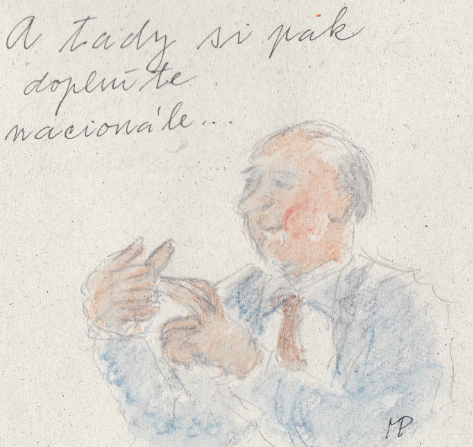 A tady si pak
doplníte
nacionále...
MP